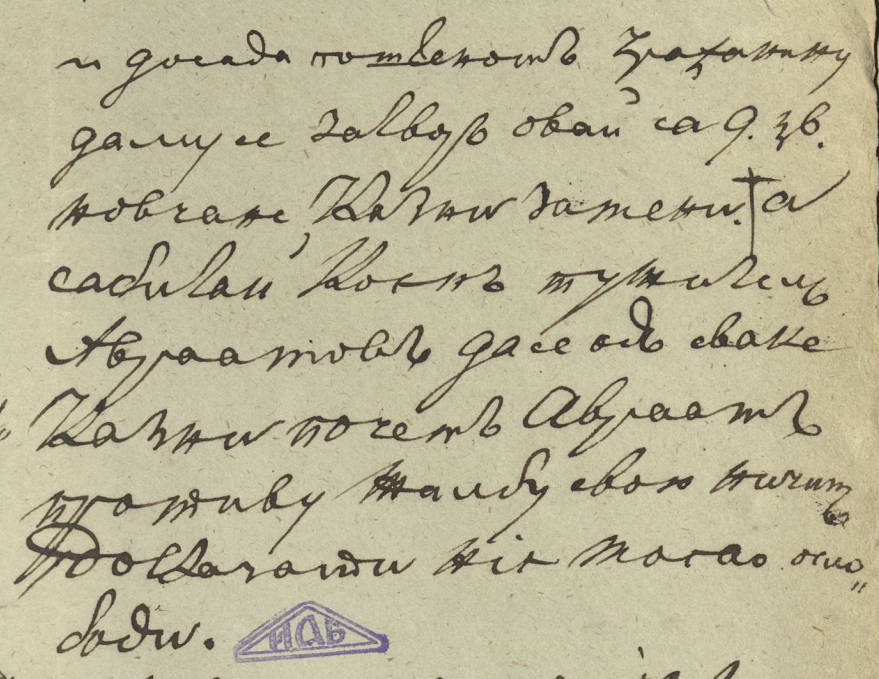 и досада потвенотъ гражанину
далисе затворъ овай са 9. зв.
новчане Казни замени. а
сабивай Коснъ тужителъ
Авраамовъ дасе одъ сваке
Казни почемъ Авраамъ
противу жалбу свою ничимъ
доказати ніе могао осло„
боди.
ИДБ